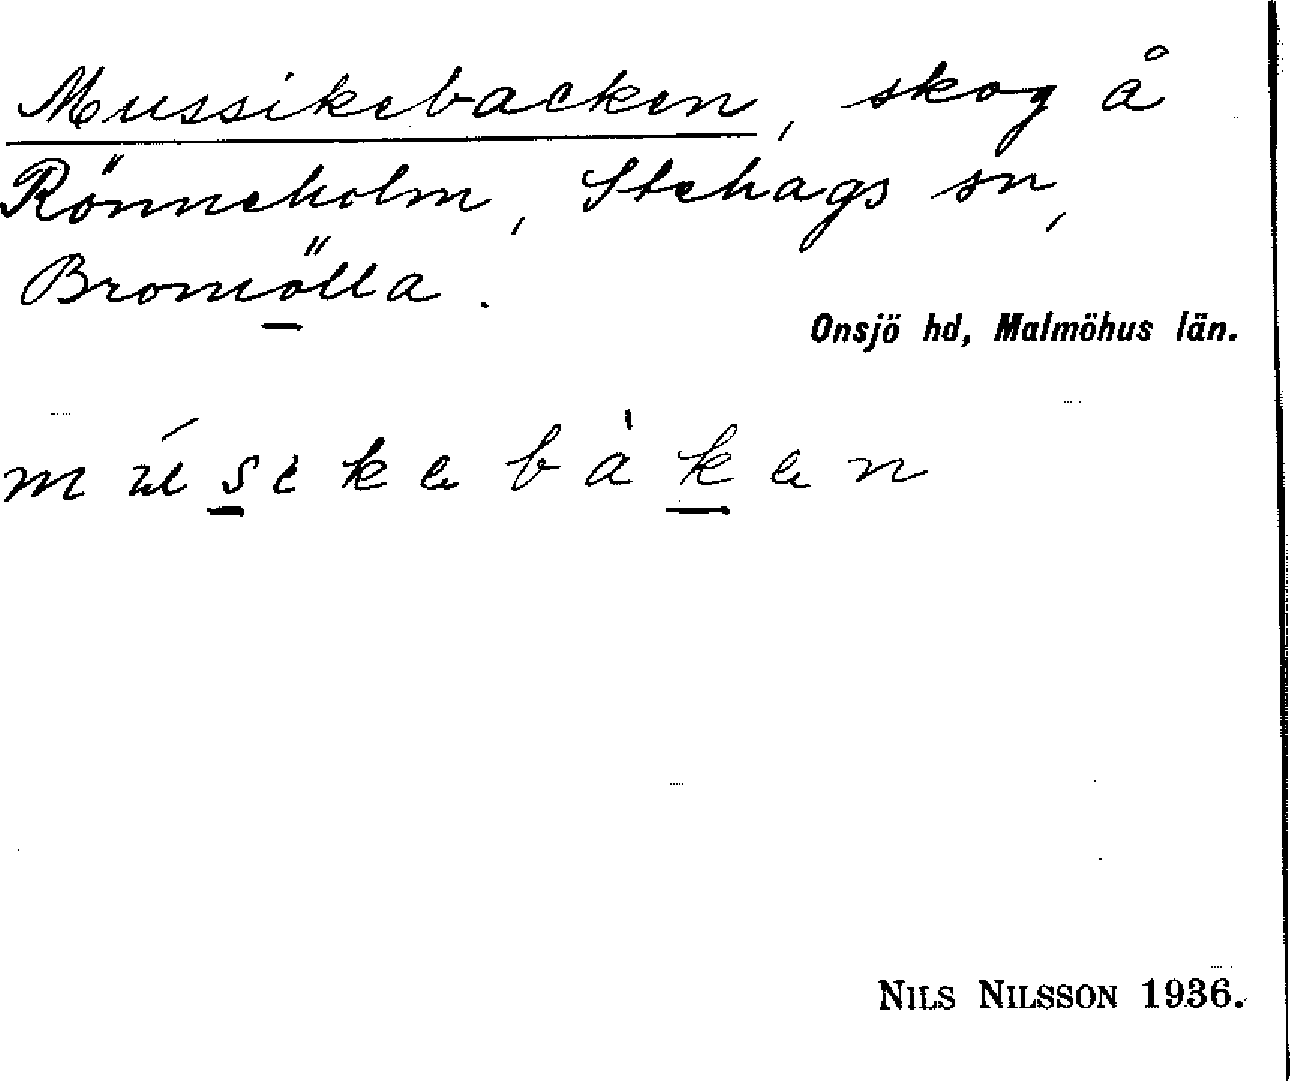 Mussikebacken, skog å
Rönneholm, Stehags sn,
Bromölla.
Onsjö hd, Malmöhus län.
músikebàken
NILS NILSSON 1936.